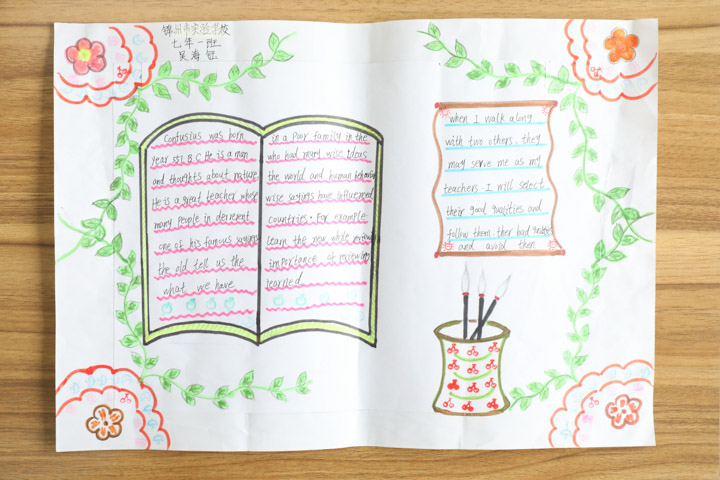 锦州市实验学校
七年一班
吴海钰
Confusius was born
year 551 B.C. He is a man
and thoughts about nature
He is a great teacher whose
many people in deverent
one of his famous sayings
the old tell us the
what we have
in a Poor family in the
who had many wise ideas
the world and human behaviour
wise sayings have influenced
countries. For example
learn the new while reviewing
importance of reviewing
learned
when I walk along
with two others, they
may serve me as my
teachers. I will select
their good qualities and
follow them their bad
and avoid then